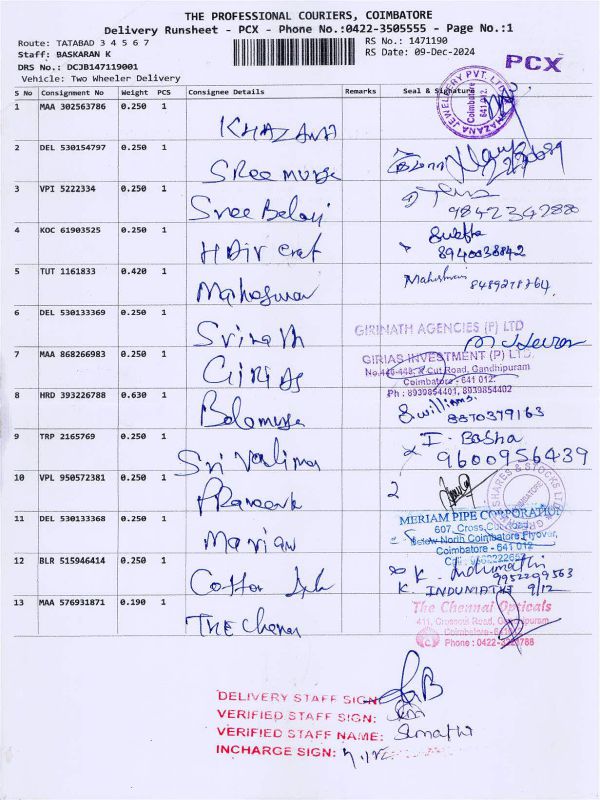 THE PROFESSIONAL COURIERS, COIMBATORE
Delivery Runsheet - PCX - Phone No.:0422-3505555 - Page No.:1
Route: TATABAD 3 4 5 6 7
RS No.: 1471190
Staff: BASKARAN K
RS Date: 09-Dec-2024
DRS No.: DCJB147119001
PCX
Vehicle: Two Wheeler Delivery
S No Consignment No Weight PCS Consignee Details Remarks Seal & Signature
KHAZANA JEWELLERY PVT. LTD
Coimbatore
641 012.
1 MAA 302563786 0.250 1
KHAZANA
2 DEL 530154797 0.250 1
Sree
3 VPI 5222334 0.250 1
Sree Balaji
9842342880
4 KOC 61903525 0.250 1
Hair
Swetha
8940038842
5 TUT 1161833 0.420 1
Maheswari
8489278764
6 DEL 530133369 0.250 1
Srinath
GIRINATH AGENCIES (P) LTD
7 MAA 868266983 0.250 1
GIRIAS
GIRIAS INVESTMENT (P) LTD.
Cut Road, Gandhipuram
Coimbatore - 641 012.
Ph : 8939854401, 8939854402
8 HRD 393226788 0.630 1
S. williams.
8870379163
9 TRP 2165769 0.250 1
I. Basha
9600956439
10 VPL 950572381 0.250 1
SHARES & STOCKS
COIMBATORE
11 DEL 530133368 0.250 1
MERIAM PIPE CORPORATION
607, Cross Cut Road,
Below North Coimbatore Flyover,
Coimbatore - 641 012
12 BLR 515946414 0.250 1
K. Indumathi
9952299563
K. INDUMATHI 9/12
13 MAA 576931871 0.190 1
The Chennai
The Chennai Opticals
Phone : 0422-
DELIVERY STAFF SIGN:
VERIFIED STAFF SIGN:
VERIFIED STAFF NAME: Sumathi
INCHARGE SIGN: